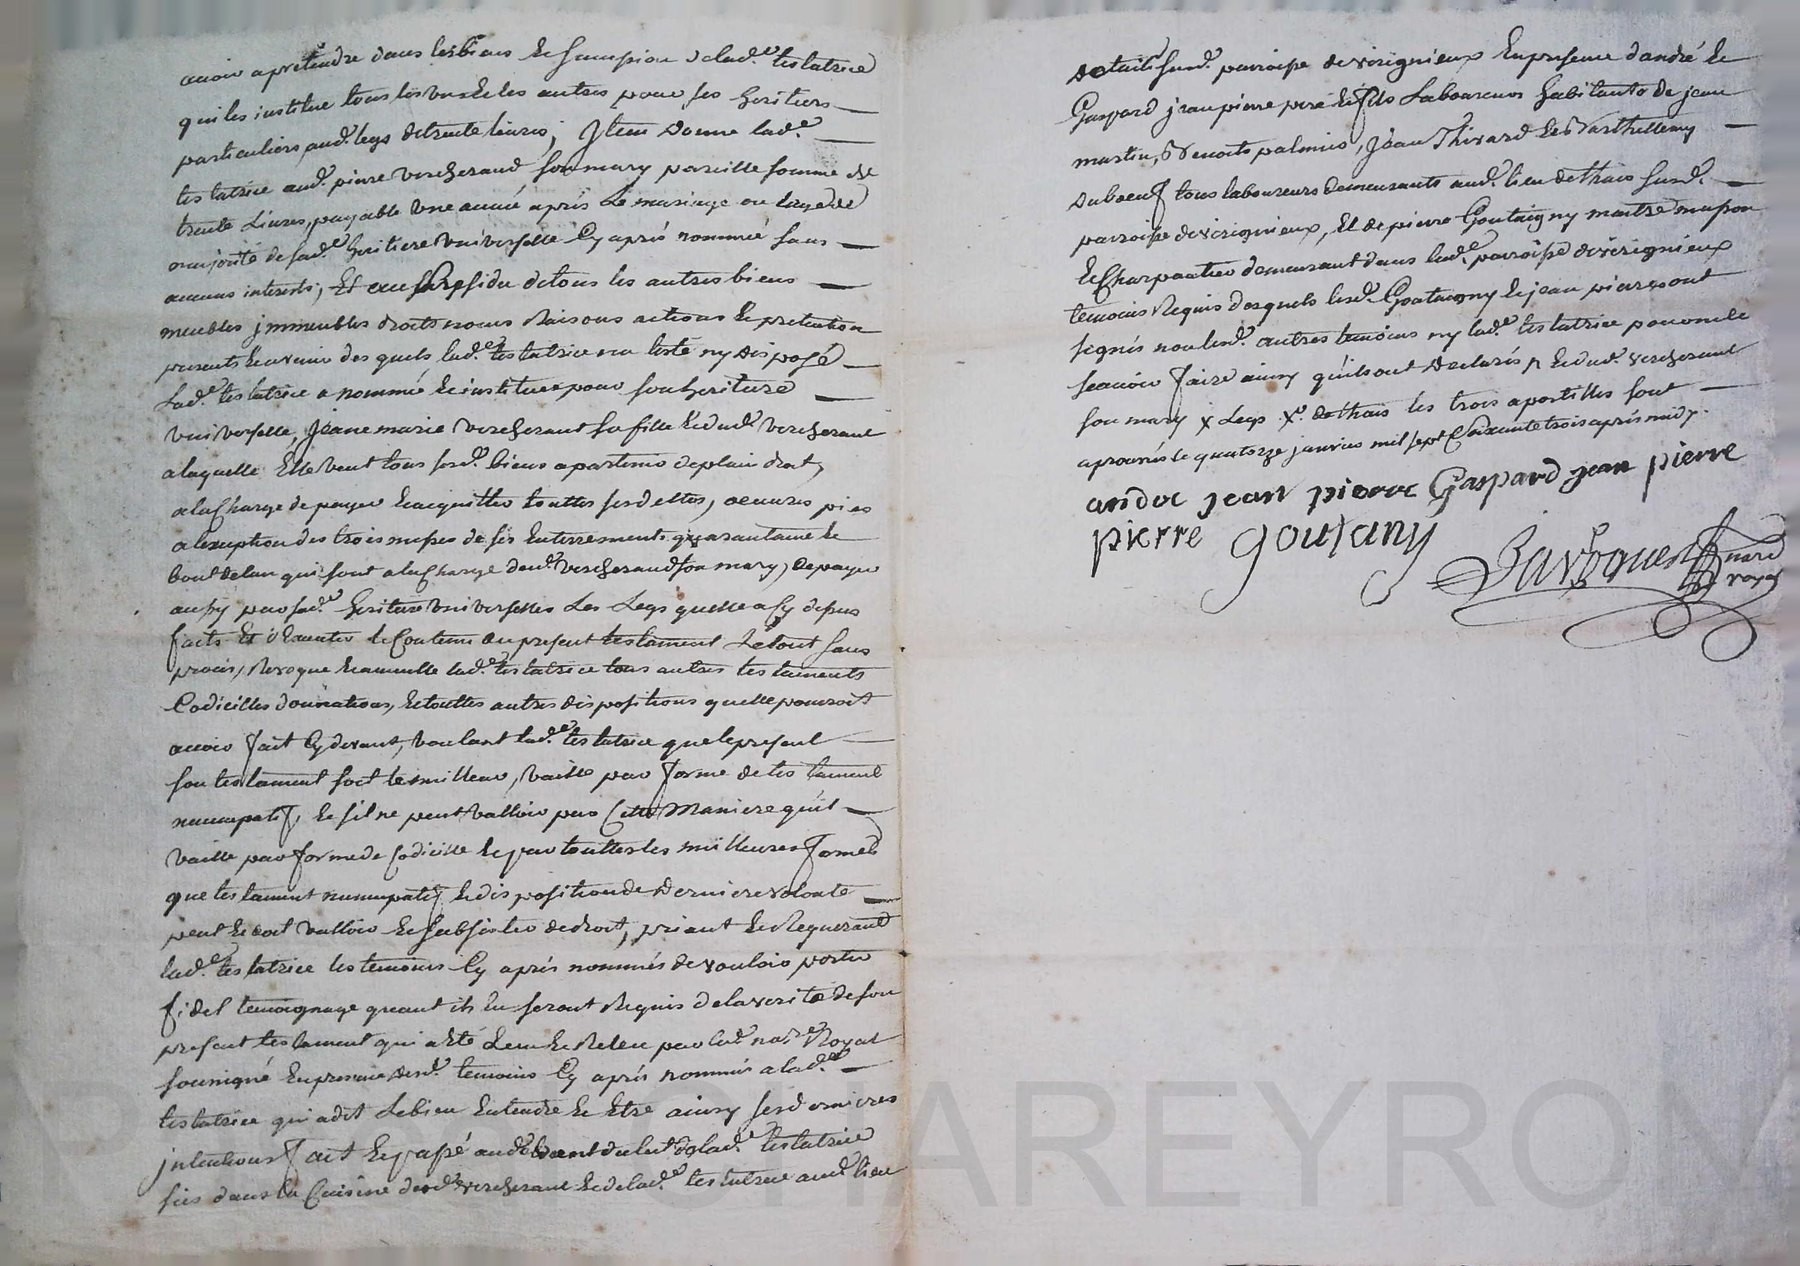 avoir a prétendre dans les biens et sucession de lad.e testatrice
qui les institue tous les uns et les autres pour ses heritiers
particuliers, aud. legs de trente livres; Item donne lad.e
testatrice aud. pierre vercherand son mary pareille somme de
trente Livres, payable une année après le mariage ou l'age de
majorité de sad.e heritiere universelle Cy après nommée sans
aucuns interests; Et au résidu de tous les autres biens
meubles immeubles droits noms Raisons actions et pretentions
presents et avenir des quels lad.e testatrice na testé ny disposé
Lad.e testatrice a nommé et institue pour son heritiere
universelle, Jeane marie vercherant sa fille et dud. vercherant
a laquelle Elle veut tous sesd. biens apartenir de plain droit,
a la Charge de payer et acquitter touttes ses dettes, oeuvres pies
a l'exception des trois messes de ses Enterrements quarantaine et
bout de lan qui sont a la Charge dud. vercherand son mary, de payer
aussy par sad.e heritiere universelle Les Legs quelle a Cy dessus
faits Et d'Executer le Contenu au present testament Le tout sans
procès, Revoque et annulle lad.e testatrice tous autres testaments
Codicilles donnations, et touttes autres dispositions quelle pourroit
avoir fait Cy devant, voulant lad.e testatrice que le present
son testament soit le meilleur, vaille par forme de testament
nuncupatif, et sil ne peut valloir par Cette Maniere quil
vaille par forme de Codicille et par touttes les meilleures formes
que testament nuncupatif et disposition de Derniere volonté
peut et doit valloir et subsister de droit, priant et Requerant
lad.e testatrice les temoins Cy après nommés de vouloir porter
fidel temoignage quant ils En seront Requis de la verité de son
present testament qui a Eté Leu et Releu par led. no.re Royal
soussigné En presence desd. temoins Cy après nommés a lad.e
testatrice qui a dit Le bien Entendre et Etre ainsy ses dernieres
intentions fait et passé au devant du lit de lad.e testatrice
sis dans la Cuisine dud. vercherant et de lad.e testatrice aud. lieu
susd. parroisse de verignieux En presence d'andré et
Gaspard jean pierre pere et fils Laboureurs habitants de
martin, Benoits palmier, Jean Thivard et Barthellemy
duboeuf tous laboureurs demeurants aud. lieu de thais susd.
parroisse de verignieux, Et de pierre Goutaigny maitre masson
et Charpantier demeurant dans lad.e parroisse de verignieux
temoins Requis desquels lesd. Goutaigny et jean pierre ont
signés non lesd. autres temoins ny lad.e testatrice pour ne le
scavoir faire ainsy quils ont Declarés et dud. vercherant
son mary x Legs x de thais les trois apostilles sont
aprouvés le quatorze janvier mil sept Cent soixante trois après midy.
andre jean pierre Gaspard jean pierre
pierre goutany